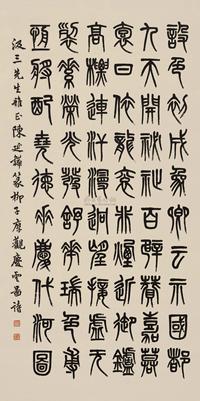 設色初成象卿云示國都
九天開祕祉百辟贊嘉謨
褱日依龍袞非煙近御鑪
高標連汗漫迥望接虛无
裂素榮光發舒華瑞色尃
恆將配堯德垂慶代河圖
汲三先生雅正陳延韡篆柳子厚觀慶雲圖詩